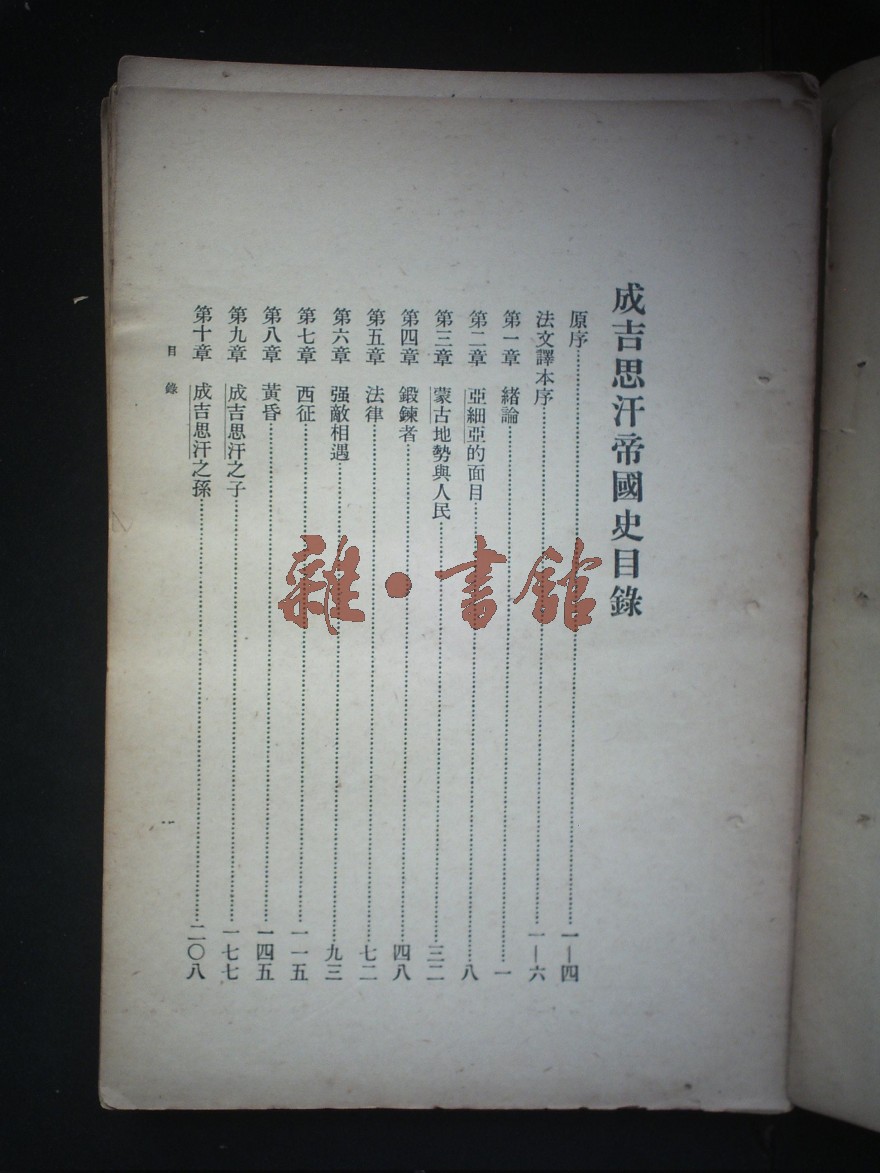 成吉思汗帝國史目錄
原序……一—四
法文譯本序……一—六
第一章 緒論……一
第二章 亞細亞的面目……八
第三章 蒙古地勢與人民……三二
第四章 鍛鍊者……四八
第五章 法律……七二
第六章 强敵相遇……九三
第七章 西征……一一五
第八章 黃昏……一四五
第九章 成吉思汗之子……一七七
第十章 成吉思汗之孫……二〇八
目錄 一
雜·書館